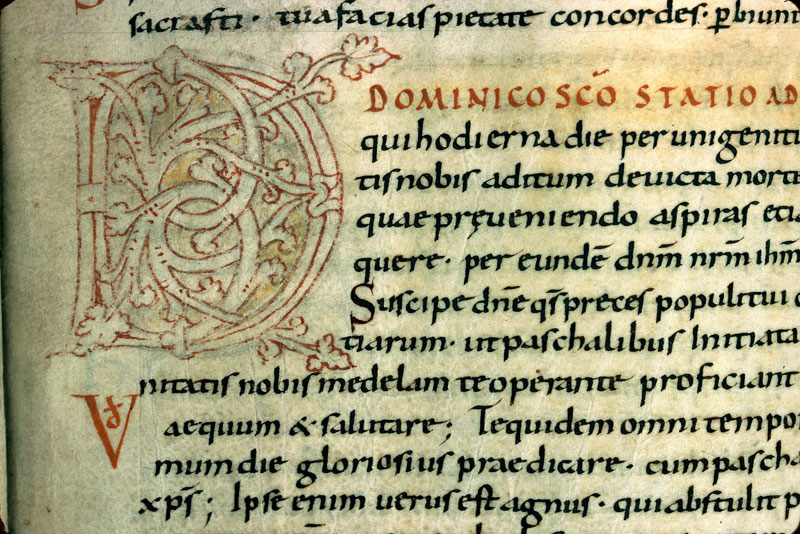 sacrasti· tua facias pietate concordes· p̄ hiunt
D
DOMINICO SC̄O STATIO AD
qui hodierna die per unigenitu
tis nobis aditum devicta morte
quae pręveniendo aspiras etia
quere· per eundē dn̄m nr̄m ihm̄
Suscipe dn̄e qs̄ preces populi tui c
tiarum· ut paschalibus Initiata
nitatis nobis medelam te operante proficiant
V aequum & salutare; Te quidem omni tempo
mum die gloriosius praedicare· cum pascha
xp̄s; Ipse enim verus est agnus· qui abstulit p